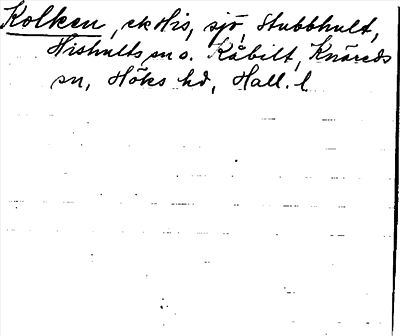 Kolken, ek His, sjö, Stubbhult,
Hishults sn o. Kåbilt, Knäreds
sn, Höks hd, Hall. l